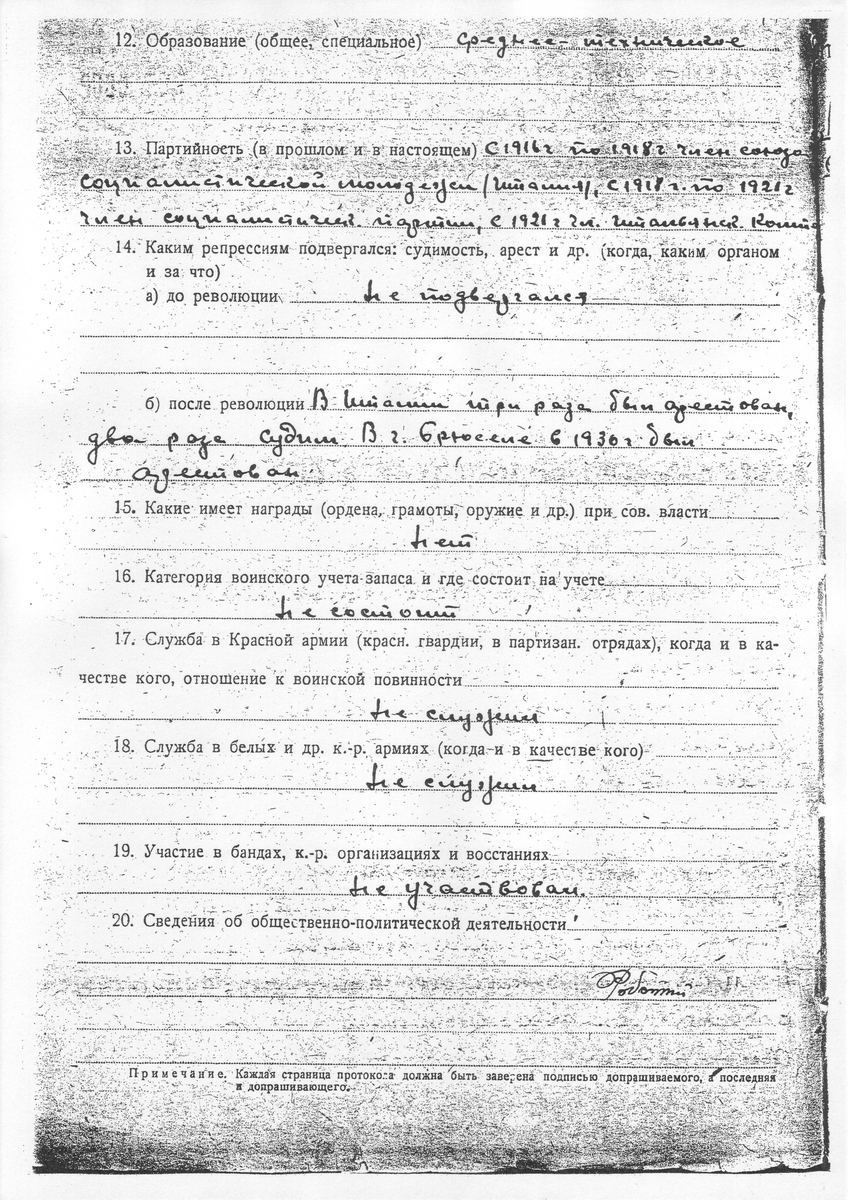 12. Образование (общее, специальное) среднее-техническое
13. Партийность (в прошлом и в настоящем) С 1916 г по 1918 г член союза
социалистической молодежи (Италия), с 1918 г. по 1921 г
член социалистическ. партии, с 1921 г чл. Итальянск. Комп
14. Каким репрессиям подвергался: судимость, арест и др. (когда, каким органом
и за что)
а) до революции не подвергался
б) после революции В Италии три раза был арестован,
два раза судим. В г. Брюселе в 1930 г был
арестован.
15. Какие имеет награды (ордена, грамоты, оружие и др.) при сов. власти
нет
16. Категория воинского учета-запаса и где состоит на учете
не состоит
17. Служба в Красной армии (красн. гвардии, в партизан. отрядах), когда и в ка-
честве кого, отношение к воинской повинности
не служил
18. Служба в белых и др. к.-р. армиях (когда и в качестве кого)
не служил
19. Участие в бандах, к.-р. организациях и восстаниях
не участвовал.
20. Сведения об общественно-политической деятельности
Роботти
Примечание. Каждая страница протокола должна быть заверена подписью допрашиваемого, а последняя
и допрашивающего.